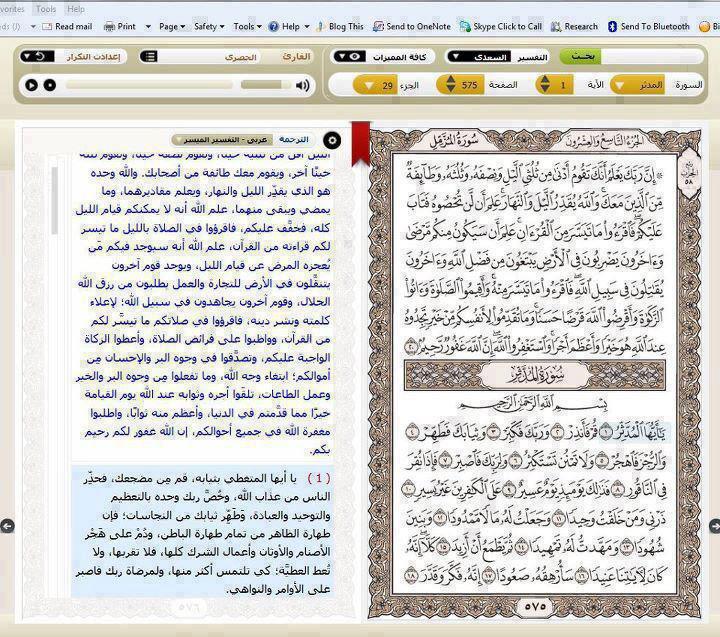 avorites Tools Help
Read mail Print Page Safety Tools Help Blog This Send to OneNote Skype Click to Call Research Send To Bluetooth
بحث التفسير السعدي كافة المميزات القارئ الحصري إعدادت التكرار
السورة المدثر الآية 1 الصفحة 575 الجزء 29
الترجمة عربي - التفسير الميسر
حينًا آخر، ويقوم معك طائفة من أصحابك. والله وحده
هو الذي يقدِّر الليل والنهار، ويعلم مقاديرهما، وما
يمضي ويبقى منهما، علم الله أنه لا يمكنكم قيام الليل
كله، فخفَّف عليكم، فاقرؤوا في الصلاة بالليل ما تيسر
لكم قراءته من القرآن، علم الله أنه سيوجد فيكم مَن
يُعجزه المرض عن قيام الليل، ويوجد قوم آخرون
يتنقَّلون في الأرض للتجارة والعمل يطلبون من رزق الله
الحلال، وقوم آخرون يجاهدون في سبيل الله؛ لإعلاء
كلمته ونشر دينه، فاقرؤوا في صلاتكم ما تيسَّر لكم
من القرآن، وواظبوا على فرائض الصلاة، وأعطوا الزكاة
الواجبة عليكم، وتصدَّقوا في وجوه البر والإحسان مِن
أموالكم؛ ابتغاء وجه الله، وما تفعلوا مِن وجوه البر والخير
وعمل الطاعات، تلقَوا أجره وثوابه عند الله يوم القيامة
خيرًا مما قدَّمتم في الدنيا، وأعظم منه ثوابًا، واطلبوا
مغفرة الله في جميع أحوالكم، إن الله غفور لكم رحيم
بكم.
( 1 ) يا أيها المتغطي بثيابه، قم مِن مضجعك، فحذِّر
الناس من عذاب الله، وخُصَّ ربك وحده بالتعظيم
والتوحيد والعبادة، وَطَهِّر ثيابك من النجاسات؛ فإن
طهارة الظاهر من تمام طهارة الباطن، ودُمْ على هَجْر
الأصنام والأوثان وأعمال الشرك كلها، فلا تقربها، ولا
تُعط العطيَّة؛ كي تلتمس أكثر منها، ولمرضاة ربك فاصبر
على الأوامر والنواهي.
٥٧٦
الجزء التاسع والعشرون سورة المزمل
إِنَّ رَبَّكَ يَعْلَمُ أَنَّكَ تَقُومُ أَدْنَىٰ مِن ثُلُثَيِ ٱلَّيْلِ وَنِصْفَهُۥ وَثُلُثَهُۥ وَطَآئِفَةٌ
مِّنَ ٱلَّذِينَ مَعَكَ وَٱللَّهُ يُقَدِّرُ ٱلَّيْلَ وَٱلنَّهَارَ عَلِمَ أَن لَّن تُحْصُوهُ فَتَابَ
عَلَيْكُمْ فَٱقْرَءُوا۟ مَا تَيَسَّرَ مِنَ ٱلْقُرْءَانِ عَلِمَ أَن سَيَكُونُ مِنكُم مَّرْضَىٰ
وَءَاخَرُونَ يَضْرِبُونَ فِى ٱلْأَرْضِ يَبْتَغُونَ مِن فَضْلِ ٱللَّهِ وَءَاخَرُونَ
يُقَٰتِلُونَ فِى سَبِيلِ ٱللَّهِ فَٱقْرَءُوا۟ مَا تَيَسَّرَ مِنْهُ وَأَقِيمُوا۟ ٱلصَّلَوٰةَ وَءَاتُوا۟
ٱلزَّكَوٰةَ وَأَقْرِضُوا۟ ٱللَّهَ قَرْضًا حَسَنًا وَمَا تُقَدِّمُوا۟ لِأَنفُسِكُم مِّنْ خَيْرٍ تَجِدُوهُ
عِندَ ٱللَّهِ هُوَ خَيْرًا وَأَعْظَمَ أَجْرًا وَٱسْتَغْفِرُوا۟ ٱللَّهَ إِنَّ ٱللَّهَ غَفُورٌ رَّحِيمٌۢ ٢٠
سورة المدثر
بِسْمِ ٱللَّهِ ٱلرَّحْمَٰنِ ٱلرَّحِيمِ
يَٰٓأَيُّهَا ٱلْمُدَّثِّرُ ١ قُمْ فَأَنذِرْ ٢ وَرَبَّكَ فَكَبِّرْ ٣ وَثِيَابَكَ فَطَهِّرْ ٤
وَٱلرُّجْزَ فَٱهْجُرْ ٥ وَلَا تَمْنُن تَسْتَكْثِرُ ٦ وَلِرَبِّكَ فَٱصْبِرْ ٧ فَإِذَا نُقِرَ
فِى ٱلنَّاقُورِ ٨ فَذَٰلِكَ يَوْمَئِذٍ يَوْمٌ عَسِيرٌ ٩ عَلَى ٱلْكَٰفِرِينَ غَيْرُ يَسِيرٍ ١٠
ذَرْنِى وَمَنْ خَلَقْتُ وَحِيدًا ١١ وَجَعَلْتُ لَهُۥ مَالًا مَّمْدُودًا ١٢ وَبَنِينَ
شُهُودًا ١٣ وَمَهَّدتُّ لَهُۥ تَمْهِيدًا ١٤ ثُمَّ يَطْمَعُ أَنْ أَزِيدَ ١٥ كَلَّآ إِنَّهُۥ
كَانَ لِءَايَٰتِنَا عَنِيدًا ١٦ سَأُرْهِقُهُۥ صَعُودًا ١٧ إِنَّهُۥ فَكَّرَ وَقَدَّرَ ١٨
٥٧٥